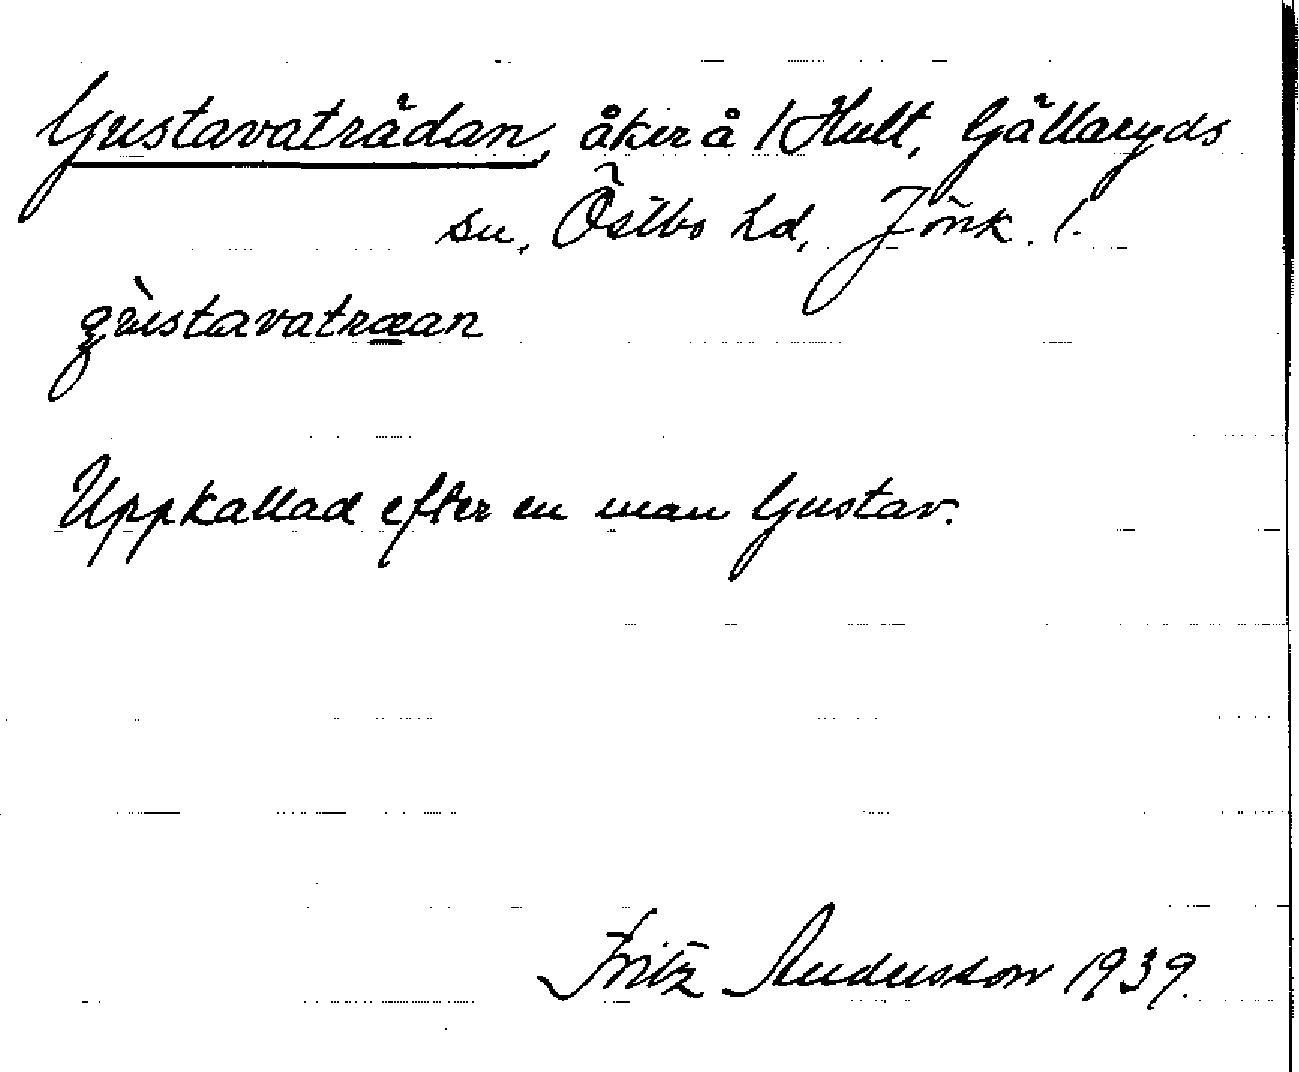 Gustavaträdan, åker å 1 Hult, Gällaryds
sn, Östbo hd, Jönk. l.
gùstavatræan
Uppkallad efter en man Gustav.
Fritz Andersson 1939.